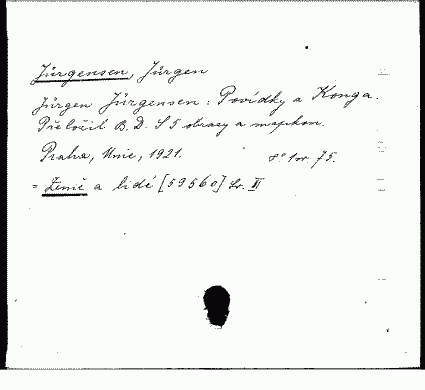 Jürgensen, Jürgen
Jürgen Jürgensen: Povídky a Konga.
Přeložil B. D. S 5 obrazy a mapkou.
Praha, Unie, 1921. 8° 1 sv. 75.
= Země a lidé [59560] Sv. II